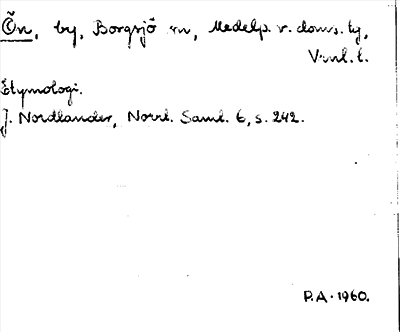 Ön, by, Borgsjö sn, Medelp. v. doms. tg,
Vnrl. l.
Etymologi.
J. Nordlander, Norrl. Saml. 6, s. 242.
P.A. 1960.